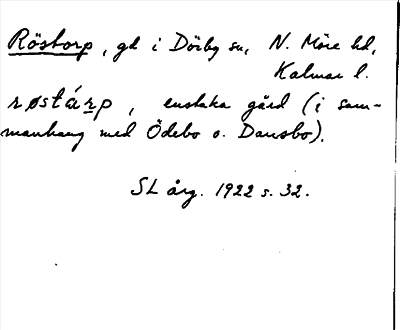 Röstorp, gd i Dörby sn, N. Möre hd,
Kalmar l.
røstárp, enstaka gård (i sam-
manhang med Ödebo o. Dansbo).
SL årg. 1922 s. 32.